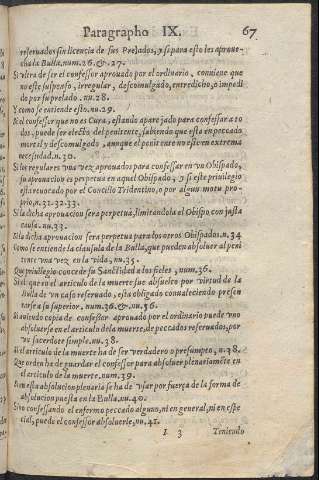 Paragrapho IX. 67
reseruados sin licencia de sus Prelados, y si para esto les aproue-
cha la Bulla. num. 26. &. 27.
Si vltra de ser el confessor aprouado por el ordinario, conuiene que
no este suspenso, irregular, descomulgado, entredicho, o impedi
do por su prelado. nu. 28.
Y como se entiende esto. nu. 29.
Si el confessor que no es Cura, estando aparejado para confessar a to
dos, puede ser electo del penitente, sabiendo que esta en peccado
mortal y descomulgado, aunque el penitente no este en extrema
necesidad. n. 30.
Si los regulares vna vez aprouados para confessar en vn Obispado,
su aprouacion es perpetua en aquel Obispado, y si este priuilegio
esta reuocado por el Concilio Tridentino, o por algun motu pro-
prio, n. 31. 32. 33.
Si la dicha aprouacion sera perpetua, limitandola el Obispo con justa
causa. nu. 33.
Si la dicha aprouacion sera perpetua para los otros Obispados. n. 34
Como se entiende la clausula de la Bulla, que pueden absoluer al peni
tente vna vez en la vida, nu. 35.
Que priuilegio concede su Sanctidad a los fieles, num. 36.
Si el que en el articulo de la muerte fue absuelto por virtud de la
Bulla de vn caso reseruado, esta obligado conualeciendo presen
tarse a su superior, num. 36. &. nu. 36.
Si auiendo copia de confessor aprouado por el ordinario puede vno
absoluerse en el articulo de la muerte, de peccados reseruados, por
vn sacerdote simple. nu. 38.
Si el articulo de la muerte ha de ser verdadero o presumpto, n. 38.
Que orden ha de guardar el confessor para absoluer plenariamẽte en
el articulo de la muerte. num. 39.
Si en esta absolucion plenaria se ha de vsar por fuerça de la forma de
absolucion puesta en la Bulla. nu. 40.
Si no confessando el enfermo peccado alguno, ni en general, ni en espe
cial, puede el confessor absoluerle, nu. 41.
I 3 Teniendo